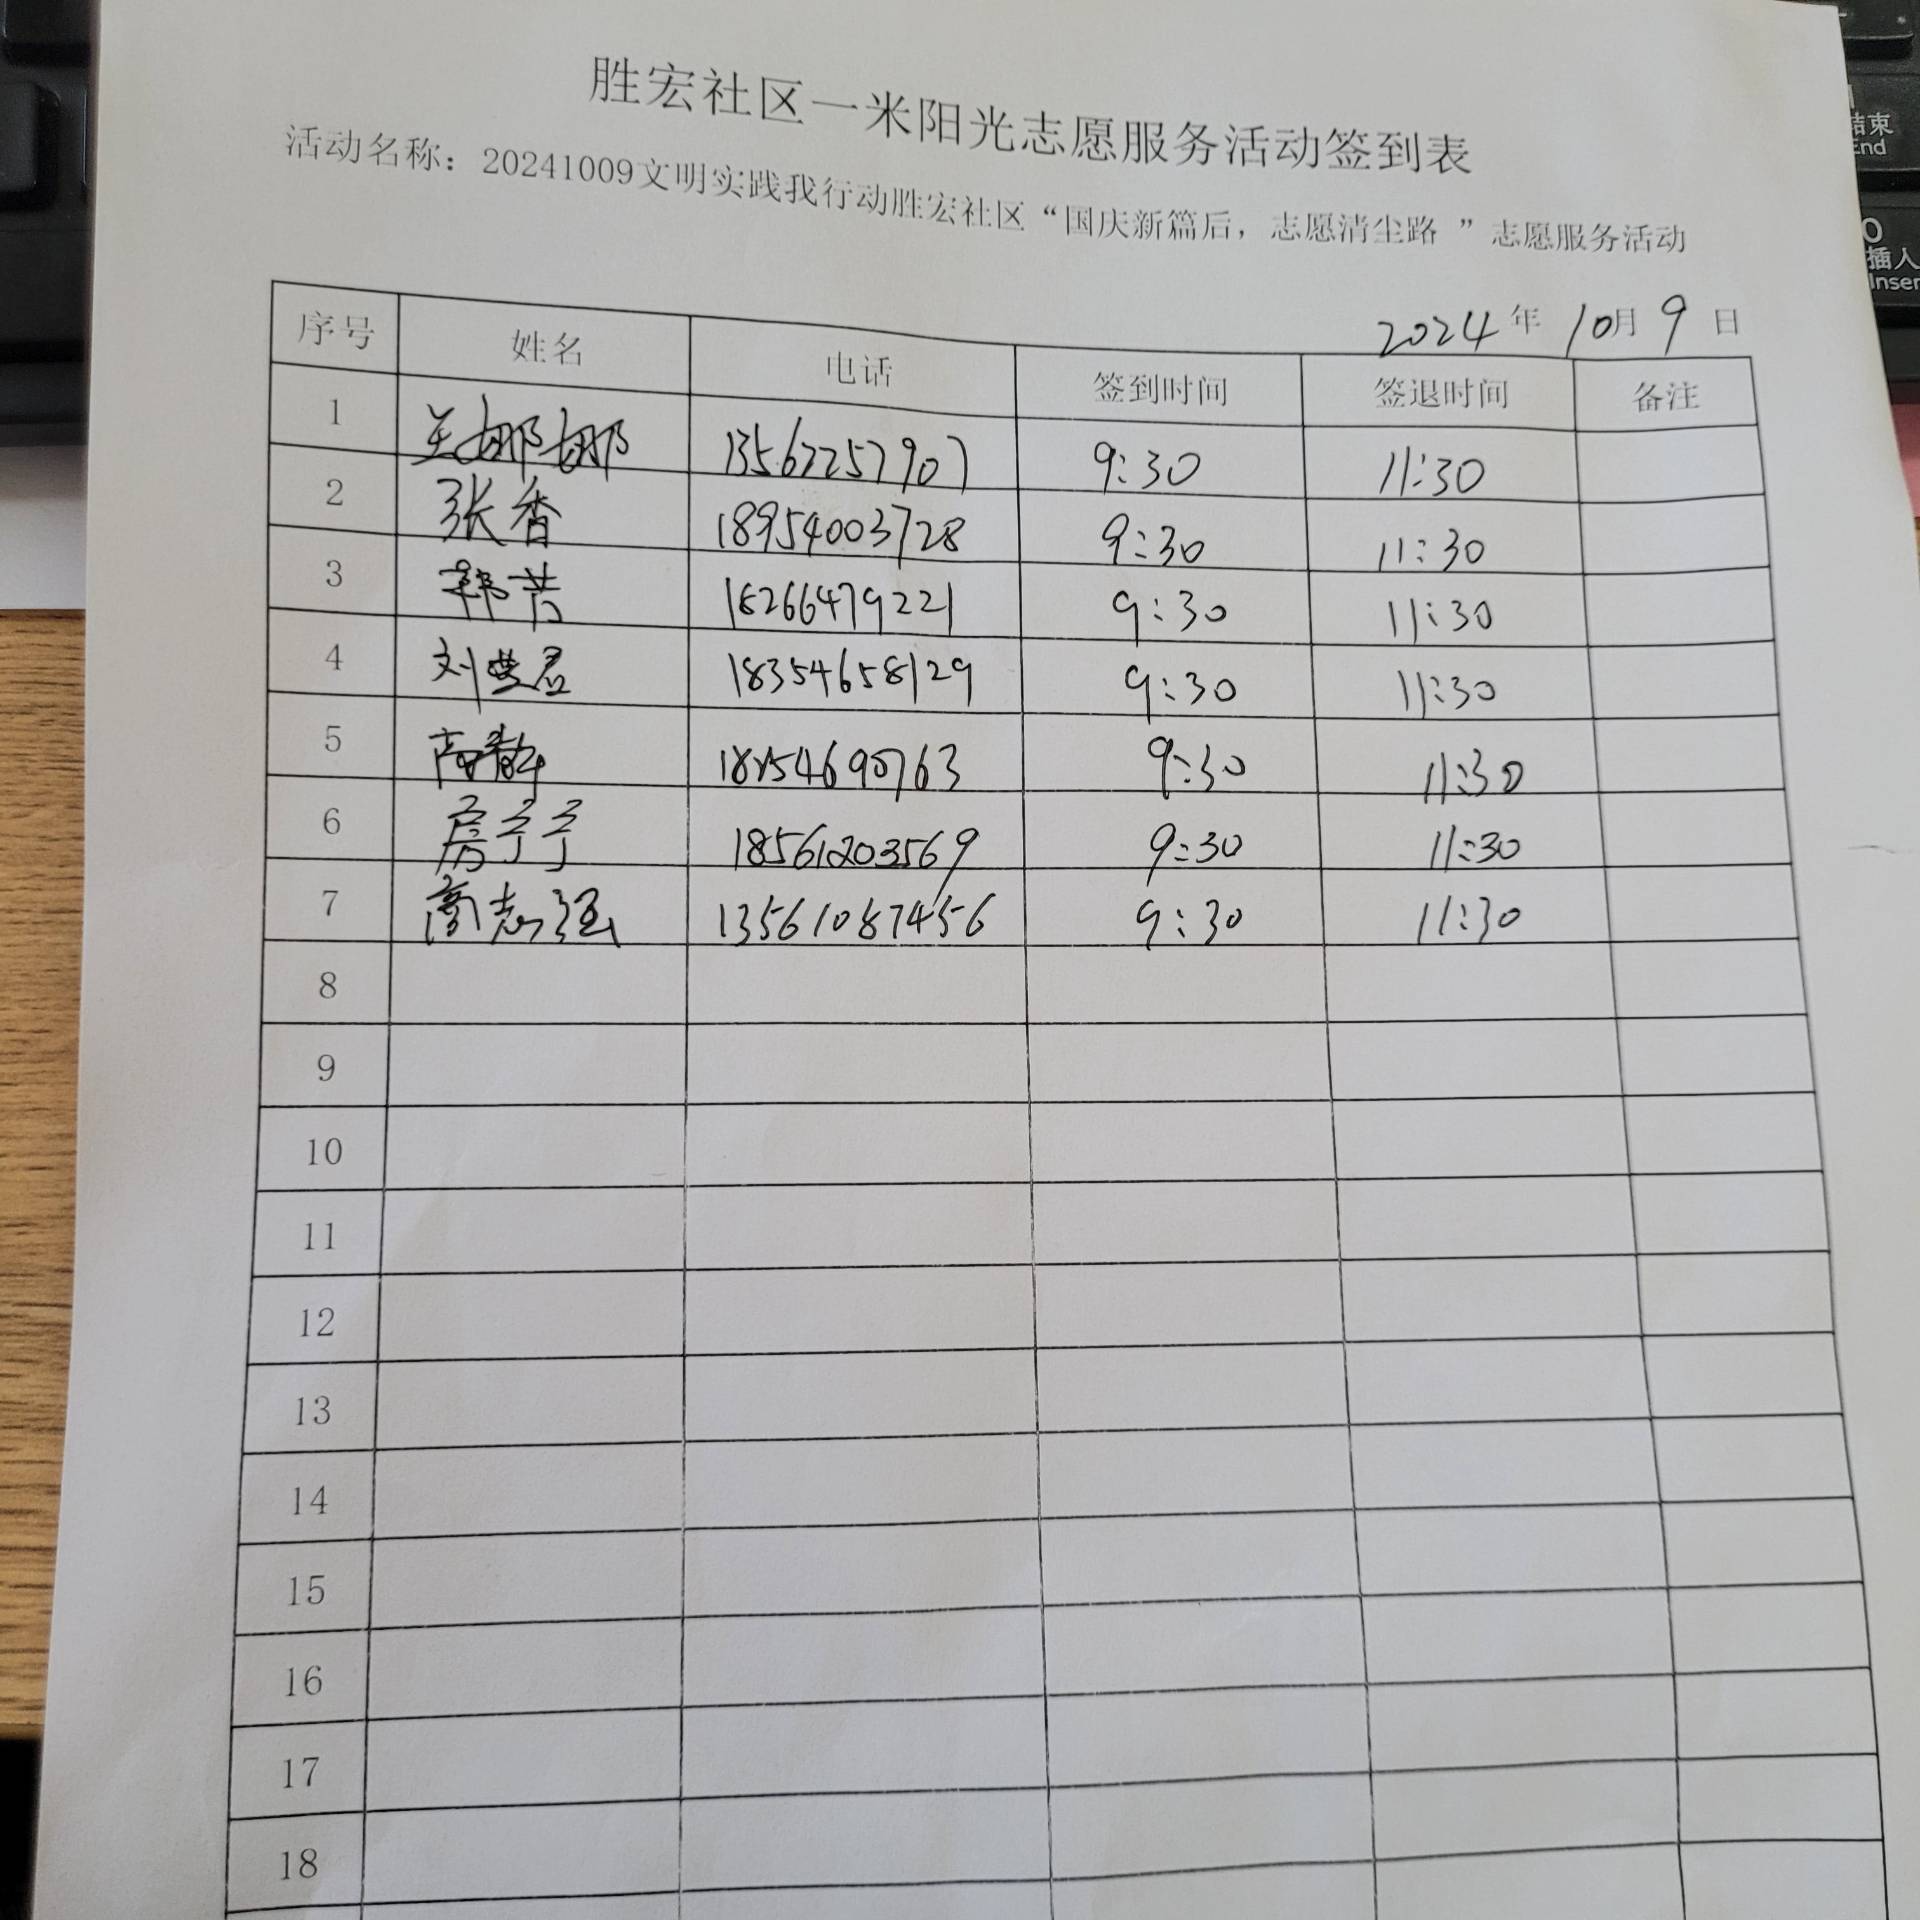 胜宏社区一米阳光志愿服务活动签到表
活动名称：20241009文明实践我行动胜宏社区“国庆新篇后，志愿清尘路 ”志愿服务活动
2024年 10月 9日
序号 姓名 电话 签到时间 签退时间 备注
1 娜娜 13562257907 9:30 11:30
2 张香 18954003728 9:30 11:30
3 韩芳 18266479221 9:30 11:30
4 刘 君 18354658129 9:30 11:30
5 高静 9:30 11:30
6 房宁宁 18561203569 9:30 11:30
7 志强 13561087456 9:30 11:30
8
9
10
11
12
13
14
15
16
17
18
结束
End
0
插入
Inser